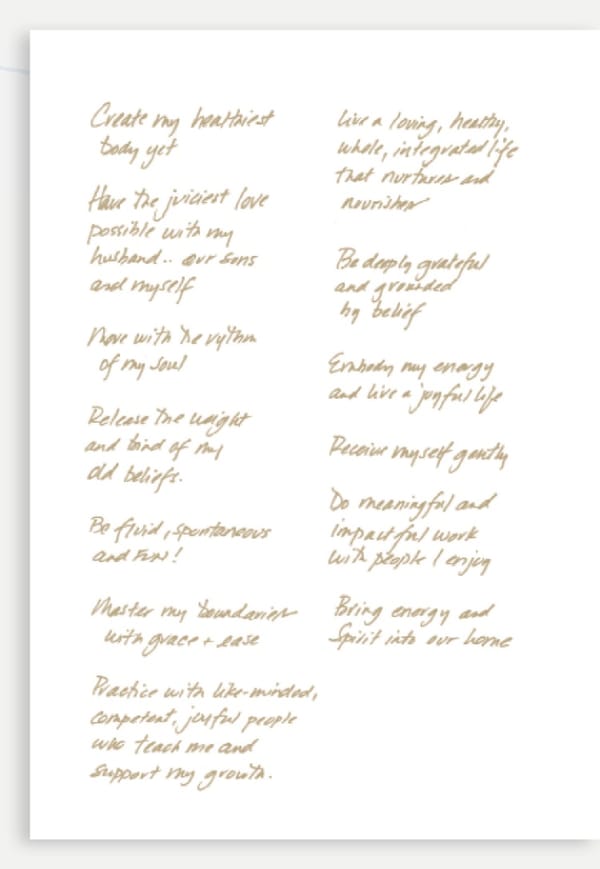 Create my healthiest
body yet
Have the juiciest love
possible with my
husband.. our sons
and myself
Move with the rythm
of my soul
Release the weight
and bind of my
old beliefs.
Be fluid, spontaneous
and FUN!
Master my boundaries
with grace + ease
Practice with like-minded,
competent, joyful people
who teach me and
support my growth.
Live a loving, healthy,
whole, integrated life
that nurtures and
nourishes
Be deeply grateful
and grounded
by belief
Embody my energy
and live a joyful life
Receive myself gently
Do meaningful and
impactful work
with people I enjoy
Bring energy and
Spirit into our home